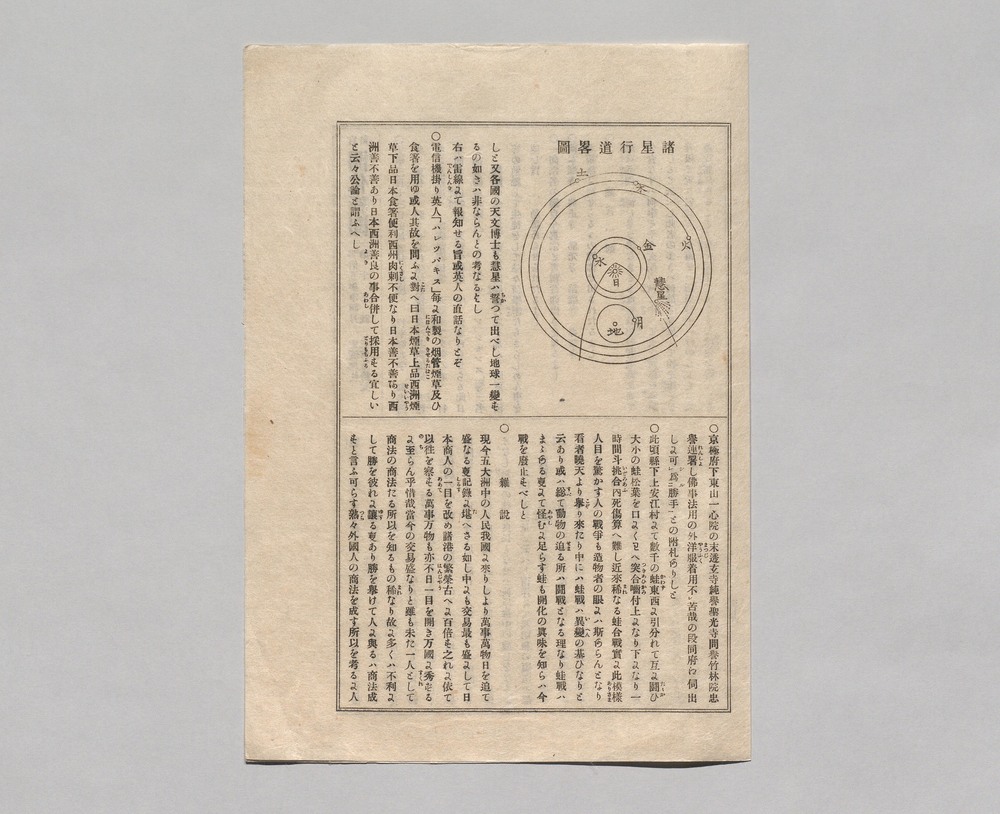 諸星行道畧圖
土
木
火
金
水
日
彗星
月
地
しと又各國の天文博士も慧星ハ誓つて出べし地球一變も
るの如きハ非ならんとの考なるもし
右ハ雷線よて報知せる旨或英人の直話なりとぞ
○電信機掛り英人「ハレツバキス」毎よ和製の烟管煙草及ひ
食箸を用ゆ或人其故を問ふよ對へ曰日本煙草上品西洲煙
草下品日本食箸便利西州肉刺不便なり日本善不善あり西
洲善不善あり日本西洲善良の事合併して採用もる宜しい
と云々公論と謂ふへし
○京極府下東山一心院の末邊玄寺純譽聖光寺間譽竹林院忠
譽連署し佛事法用の外洋服着用不苦哉の段同府に伺出
しよ可爲勝手との附札ありしと
○此頃縣下上安江村よて數千の蛙東西よ引分れて互よ鬪ひ
大小の蛙松葉を口よくはへ突合嚙付上よなり下よなり一
時間斗挑合內死傷算へ難し近來稀なる蛙合戰實よ此模樣
人目を驚かす人の戰爭も造物者の眼よハ斯あらんとなり
看者曉天より擧り來たり中にハ蛙戰ハ異變の基ひなりと
云あり或ハ總て動物の迫る所ハ鬪戰となる理なり蛙戰ハ
まゝある亊よて怪むよ足らす蛙も開化の眞味を知らハ今
戰を廢止もべしと
○雜說
現今五大洲中の人民我國よ來りしより萬事萬物日を追て
盛なる亊記錄よ堪へさる如し中よも交易最も盛よして日
本商人の一目を改め諸港の繁榮古へよ百倍も之れよ依て
以往を察もる萬事万物も亦不日一目を開き万國よ秀もる
よ至らん乎惜哉當今の交易盛なりと雖も未た一人として
商法の商法たる所以を知るもの稀なり故よ多くハ不利よ
して勝を彼れよ讓る亊あり勝を擧けて人よ與るハ商法成
もと言ふ可らす熟々外國人の商法を成す所以を考るよ人